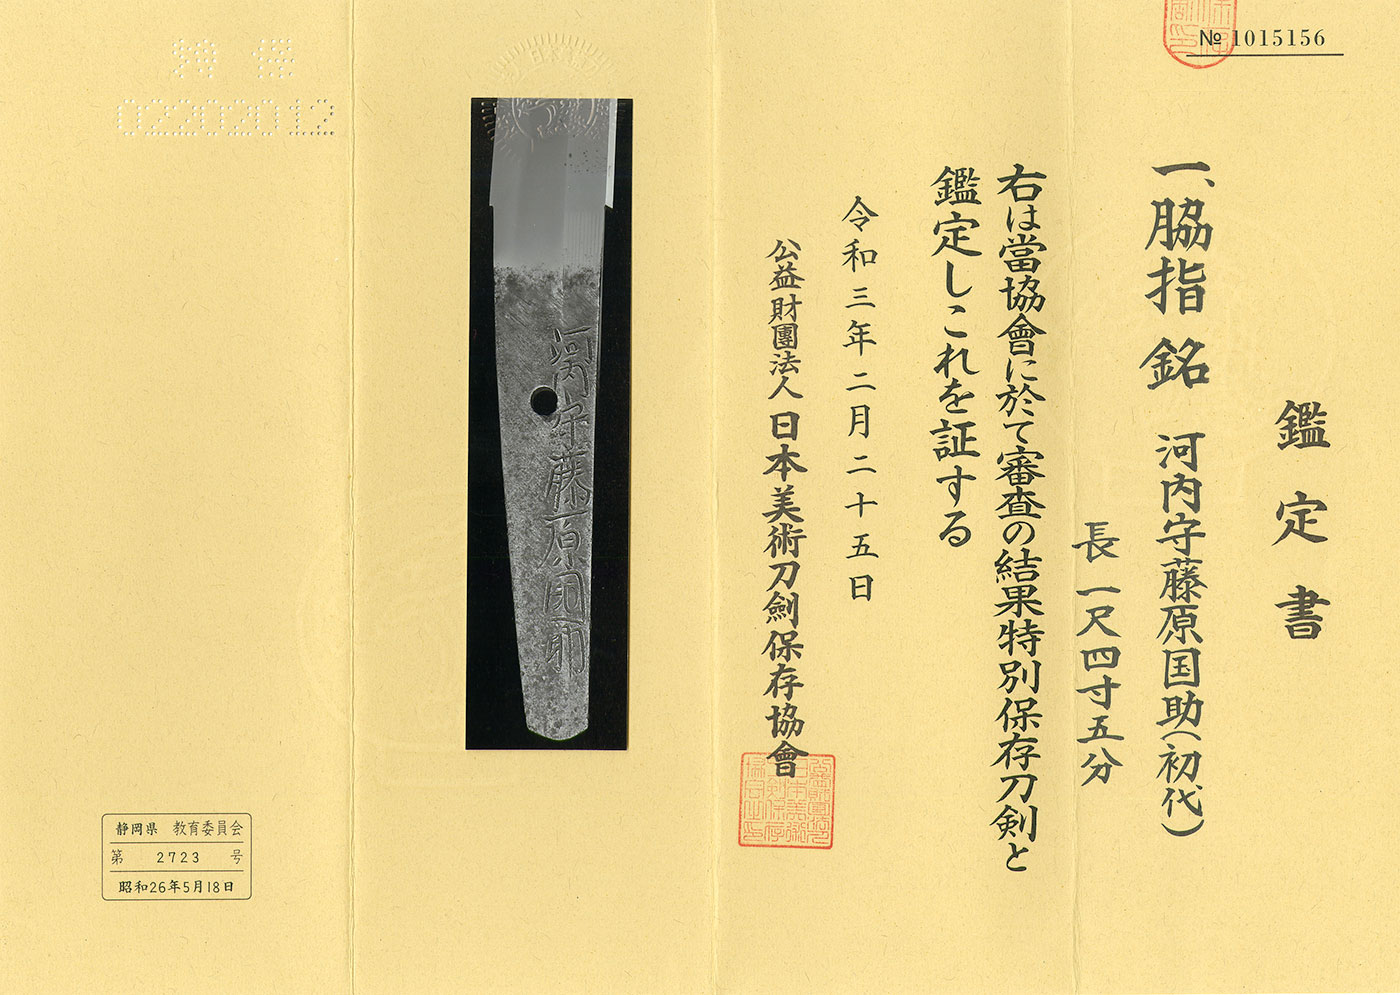 № 1015156
鑑定書
一、脇指 銘 河内守藤原国助(初代)
長 一尺四寸五分
右は當協會に於て審査の結果特別保存刀剣と
鑑定しこれを証する
令和三年二月二十五日
公益財團法人 日本美術刀劍保存協會
河内守藤原国助
特保
02202012
静岡県 教育委員会
第 2723 号
昭和26年5月18日